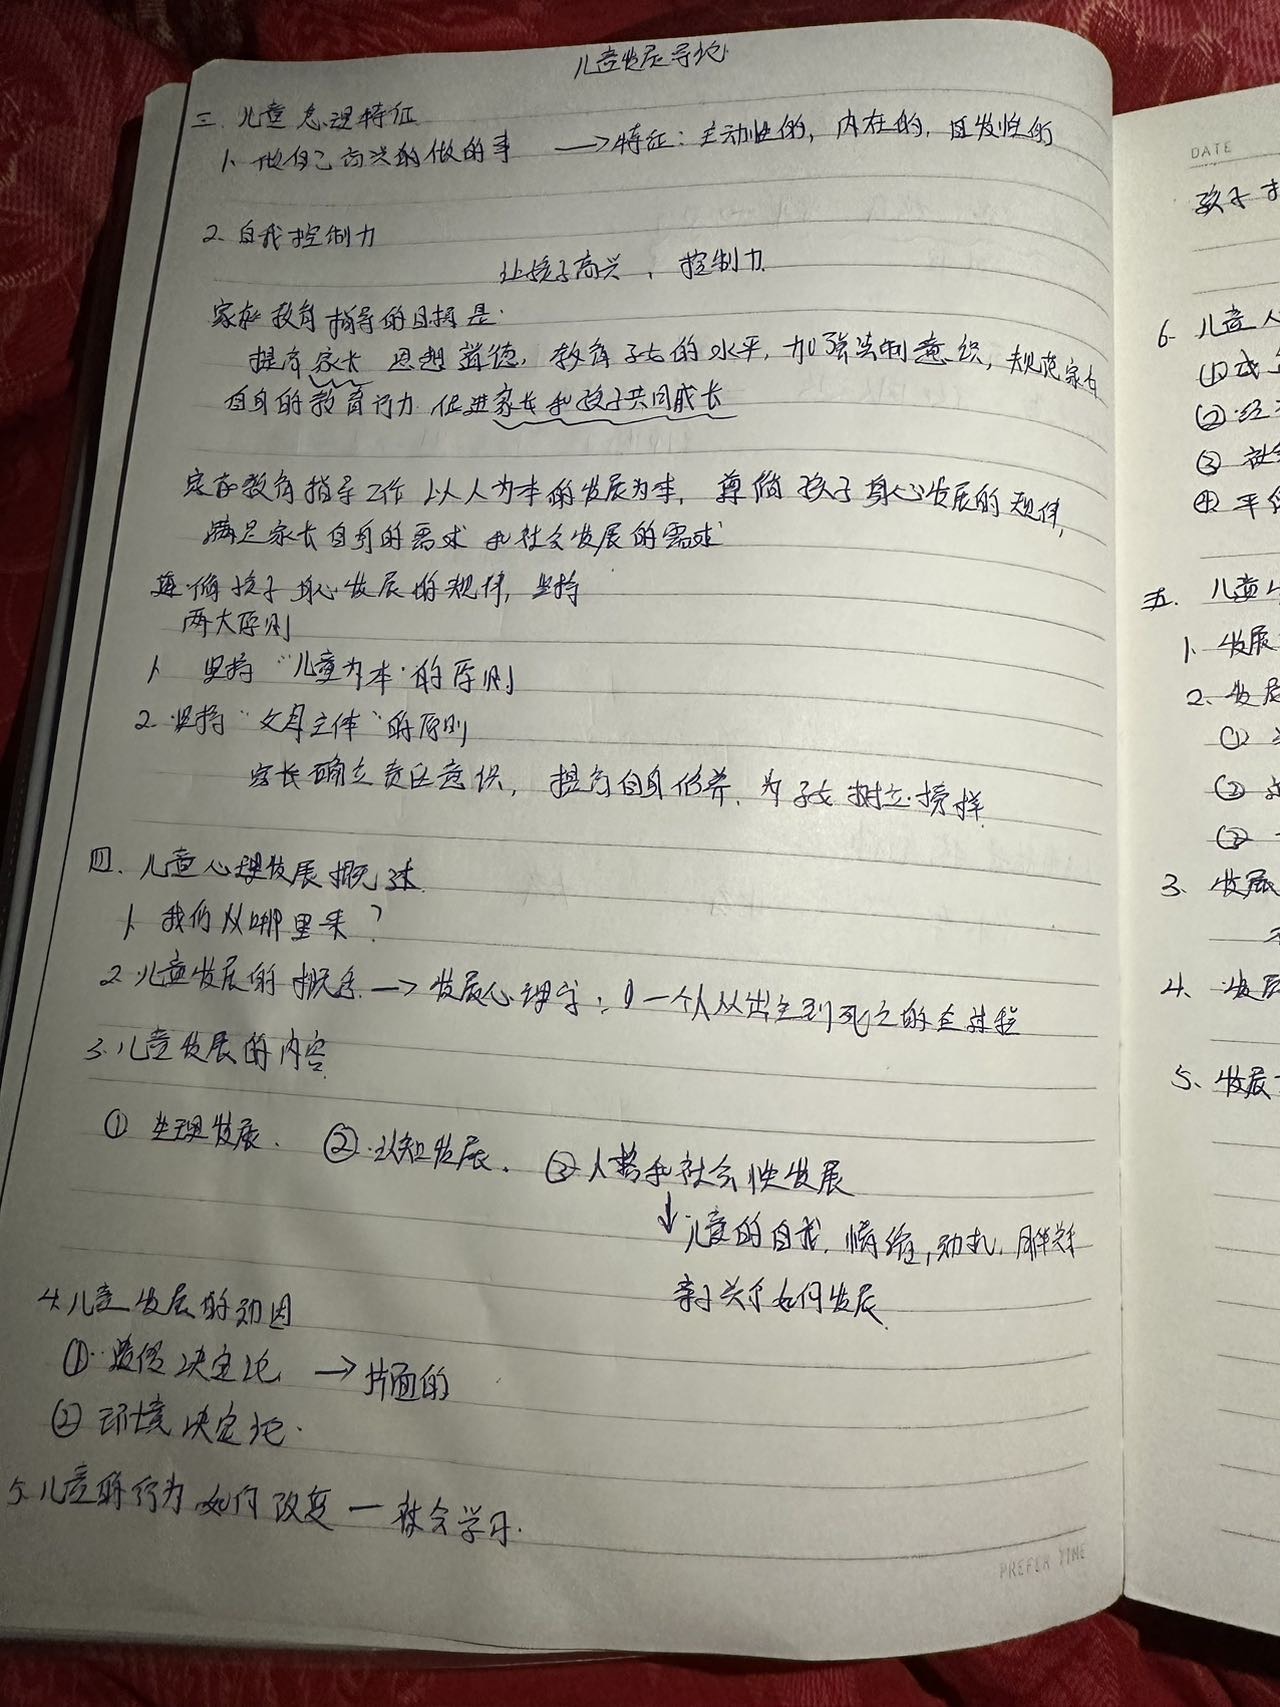 儿童发展导论
三. 儿童心理特征
1. 做自己高兴的做的事 →特征: 主动性的, 内在的, 自发性的
2. 自我控制力
让孩子高兴、控制力
家庭教育指导的目标是:
提高家长思想道德, 教育子女的水平, 加强法制意识, 规范家长
自身的教育行为 促进家长和孩子共同成长
家庭教育指导工作 以人为本的发展为本, 尊循孩子身心发展的规律,
满足家长自身的需求和社会发展的需求
尊循孩子身心发展的规律, 坚持
两大原则
1. 坚持“儿童为本”的原则
2. 坚持“父母主体”的原则
家长确立责任意识, 提高自身修养、为子女树立榜样
四. 儿童心理发展概述
1. 我们从哪里来?
2. 儿童发展的概念 → 发展心理学: 一个人从出生到死亡的全过程
3. 儿童发展的内容
① 生理发展. ② 认知发展. ③ 人格和社会性发展
↓儿童的自我, 情绪, 动机, 同伴关系
亲子关系如何发展
4. 儿童发展的动因
① 遗传决定论 → 片面的
② 环境决定论.
5. 儿童的行为如何改变 — 社会学习.
PREFER TIME
DATE
孩子
6. 儿童
(1)
(2) 经
③ 社会
④ 平
五. 儿童
1. 发展
2. 发展
①
②
3. 发展
4. 发展
5. 发展